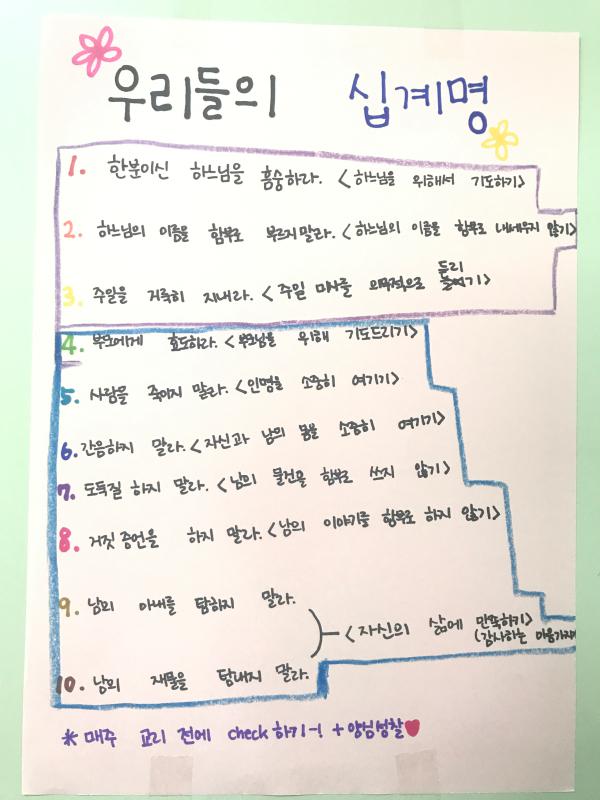 우리들의 십계명
1. 한분이신 하느님을 흠숭하라. <하느님을 위해서 기도하기>
2. 하느님의 이름을 함부로 부르지 말라. <하느님의 이름을 함부로 내세우지 않기>
드리
3. 주일을 거룩히 지내라. <주일 미사를 의무적으로 기>
4. 부모에게 효도하라. <부모님을 위해 기도드리기>
5. 사람을 죽이지 말라. <인명을 소중히 여기기>
6. 간음하지 말라. <자신과 남의 몸을 소중히 여기기>
7. 도둑질 하지 말라. <남의 물건을 함부로 쓰지 않기>
8. 거짓 증언을 하지 말라. <남의 이야기를 함부로 하지 않기>
9. 남의 아내를 탐하지 말라.
<자신의 삶에 만족하기>
(감사하는 마음가지
10. 남의 재물을 탐내지 말라.
* 매주 교리 전에 check 하기~! + 양심성찰♥